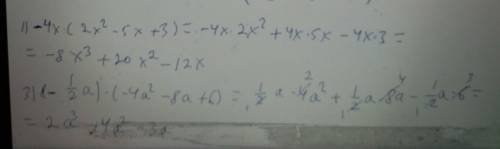 1) -4x·(2x²-5x+3)= -4x·2x²+4x·5x-4x·3=
= -8x³+20x²-12x
3)(-1/2a)·(-4a²-8a+6)= 1/2a·4a²+1/2a·8a-1/2a·6=
= 2a³